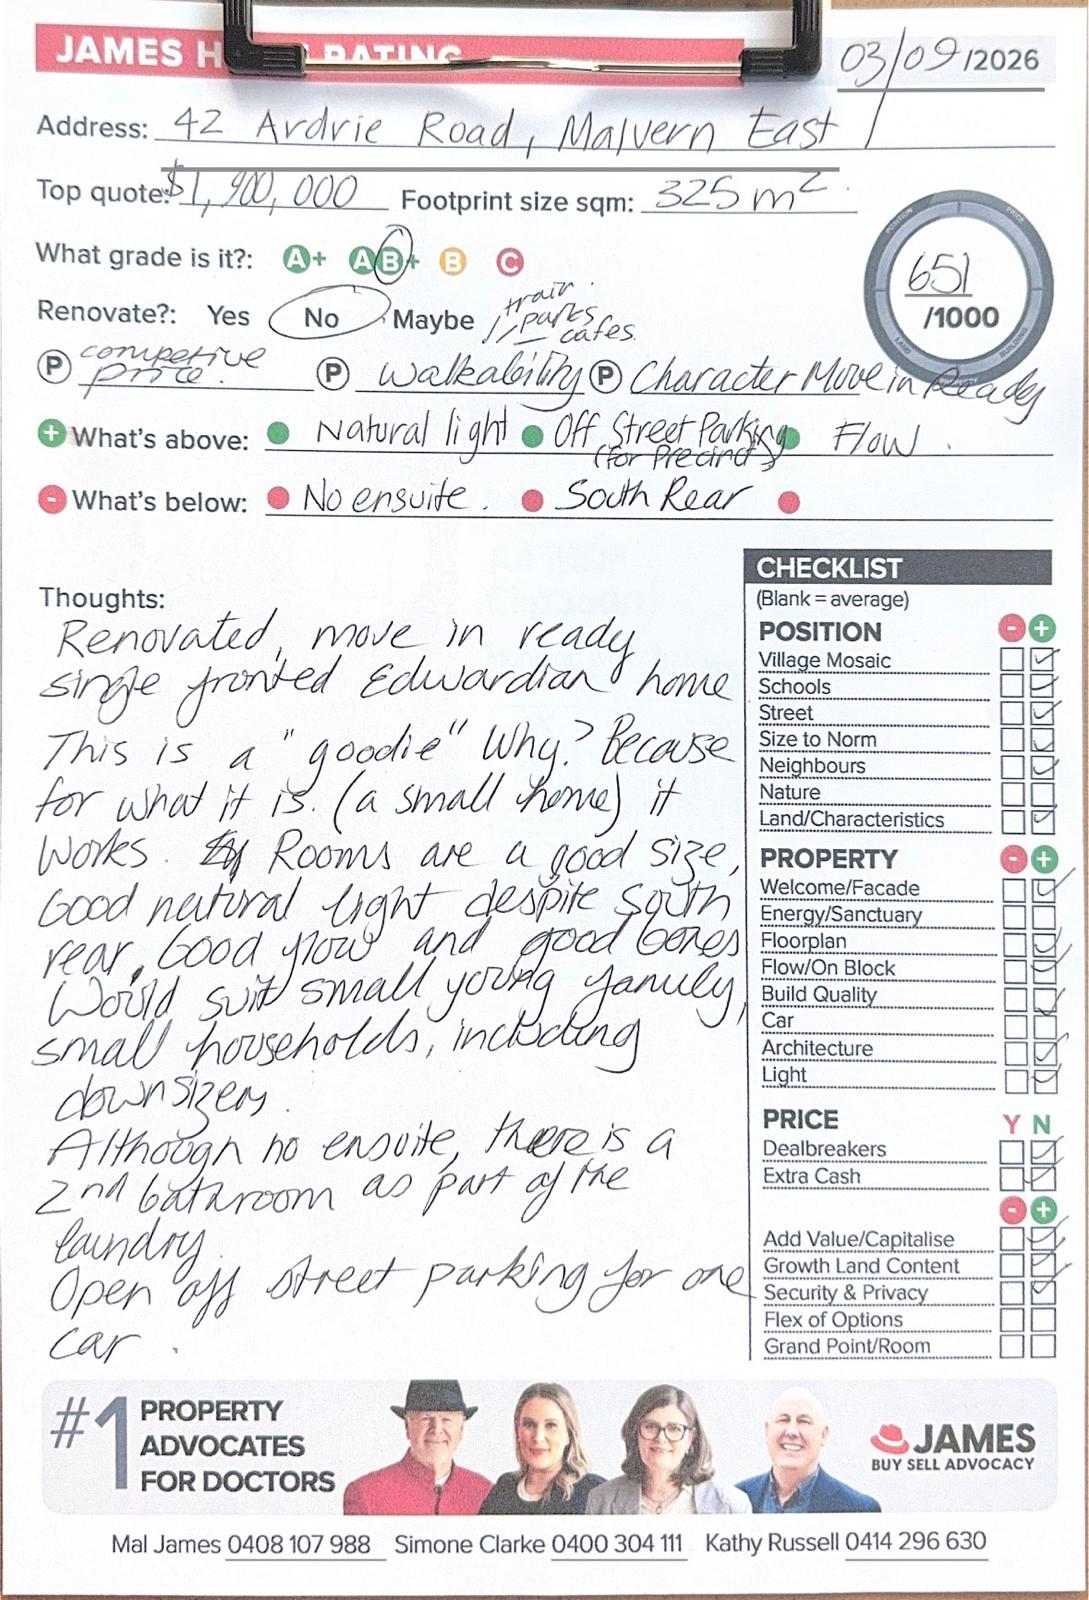 JAMES H RATING 03/09/2026
Address: 42 Ardrie Road, Malvern East
Top quote: $1,900,000 Footprint size sqm: 325 m²
What grade is it?: A+ AB+ B C
651 /1000
Renovate?: Yes No Maybe train / parks cafes.
P competive price. P Walkability P Character Move in Ready
+ What's above: Natural light Off Street Parking (for Precinct) Flow.
- What's below: No ensuite. South Rear
Thoughts:
Renovated, move in ready
single fronted Edwardian home
This is a "goodie" Why? Because
for what it is. (a small home) it
works. Rooms are a good size,
Good natural light despite South
rear, Good flow and good bones
Would suit small young family,
small households, including
downsizers.
Although no ensuite, there is a
2nd bathroom as part of the
laundry.
Open off street parking for one
car.
CHECKLIST
(Blank = average)
POSITION - +
Village Mosaic
Schools
Street
Size to Norm
Neighbours
Nature
Land/Characteristics
PROPERTY - +
Welcome/Facade
Energy/Sanctuary
Floorplan
Flow/On Block
Build Quality
Car
Architecture
Light
PRICE Y N
Dealbreakers
Extra Cash
- +
Add Value/Capitalise
Growth Land Content
Security & Privacy
Flex of Options
Grand Point/Room
#1 PROPERTY
ADVOCATES
FOR DOCTORS
JAMES
BUY SELL ADVOCACY
Mal James 0408 107 988 Simone Clarke 0400 304 111 Kathy Russell 0414 296 630